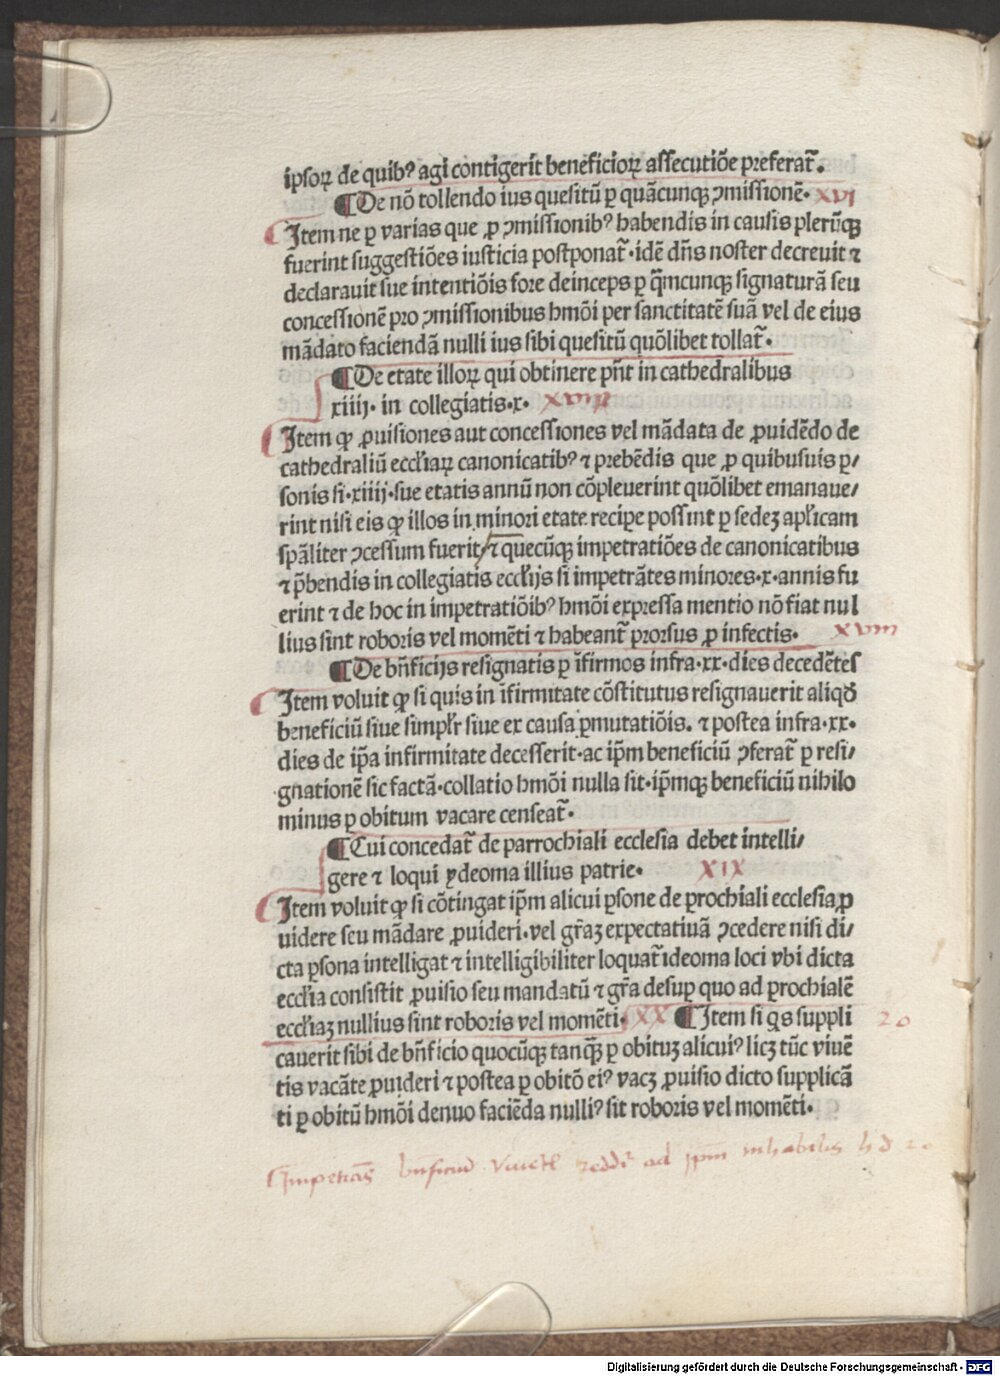 ipsoꝝ de quibꝰ agi contigerit beneficioꝝ assecutiōe preferat᷑.
¶ De nō tollendo ius quesitū ꝑ quācunqꝫ ꝯmissionē· XVI
Item ne ꝑ varias que ꝓ ꝯmissionibꝰ habendis in causis plerūqꝫ
fuerint suggestiōes iusticia postponat᷑·idē dn̄s noster decreuit ⁊
declarauit sue intentiōis fore deinceps ꝑ q̄mcunqꝫ signaturā seu
concessionē pro ꝯmissionibus hmōi per sanctitatē suā vel de eius
mādato faciendā nulli ius sibi quesitū quōlibet tollat᷑·
¶ De etate illoꝝ qui obtinere pn̄t in cathedralibus
xiiij· in collegiatis·x· XVII
Item ꝙ ꝓuisiones aut concessiones vel mādata de ꝓuidēdo de
cathedraliū eccl̄iaꝝ canonicatibꝰ ⁊ prebēdis que ꝓ quibusuis ꝑ/
sonis si·xiiij·sue etatis annū non cōpleuerint quōlibet emanaue/
rint nisi eis ꝙ illos in minori etate recipe possint ꝑ sedeꝫ apl̄icam
spāliter ꝯcessum fuerit/ ⁊ quecūqꝫ impetratiōes de canonicatibus
⁊ p̄bendis in collegiatis eccl̄ijs si impetrātes minores·x·annis fu
erint ⁊ de hoc in impetratiōibꝰ hmōi expressa mentio nō fiat nul
lius sint roboris vel momēti ⁊ habeant᷑ prorsus ꝓ infectis· XVIII
¶ De bn̄ficijs resignatis ꝑ īfirmos infra·xx·dies decedētes
Item voluit ꝙ si quis in īfirmitate cōstitutus resignauerit aliqđ
beneficiū siue simpl̄r siue ex causa ꝑmutatiōis. ⁊ postea infra·xx·
dies de ip̄a infirmitate decesserit·ac ip̄m beneficiū ꝯferat᷑ ꝑ resi/
gnationē sic factā·collatio hmōi nulla sit·ip̄mqꝫ beneficiū nihilo
minus ꝑ obitum vacare censeat᷑·
¶ Cui concedat᷑ de parrochiali ecclesia debet intelli/
gere ⁊ loqui ydeoma illius patrie· XIX
Item voluit ꝙ si cōtingat ip̄m alicui ꝑsone de ꝑrochiali ecclesia ꝓ
uidere seu mādare ꝓuideri·vel gr̄aꝫ expectatiuā ꝯcedere nisi di/
cta ꝑsona intelligat ⁊ intelligibiliter loquat᷑ ideoma loci vbi dicta
eccl̄ia consistit ꝓuisio seu mandatū ⁊ gr̄a desuꝑ quo ad ꝑrochialē
eccl̄iaꝫ nullius sint roboris vel momēti· XX ¶ Item si q̄s suppli 20
cauerit sibi de bn̄ficio quocūqꝫ tanq̄ꝫ ꝑ obituꝫ alicuiꝰ licꝫ tūc viuē
tis vacāte ꝓuideri ⁊ postea ꝑ obitō eiꝰ vacꝫ ꝓuisio dicto supplicā
ti ꝑ obitū hmōi denuo faciēda nulliꝰ sit roboris vel momēti·
Impetrās bn̄ficiū ad ip̄m inhabilis